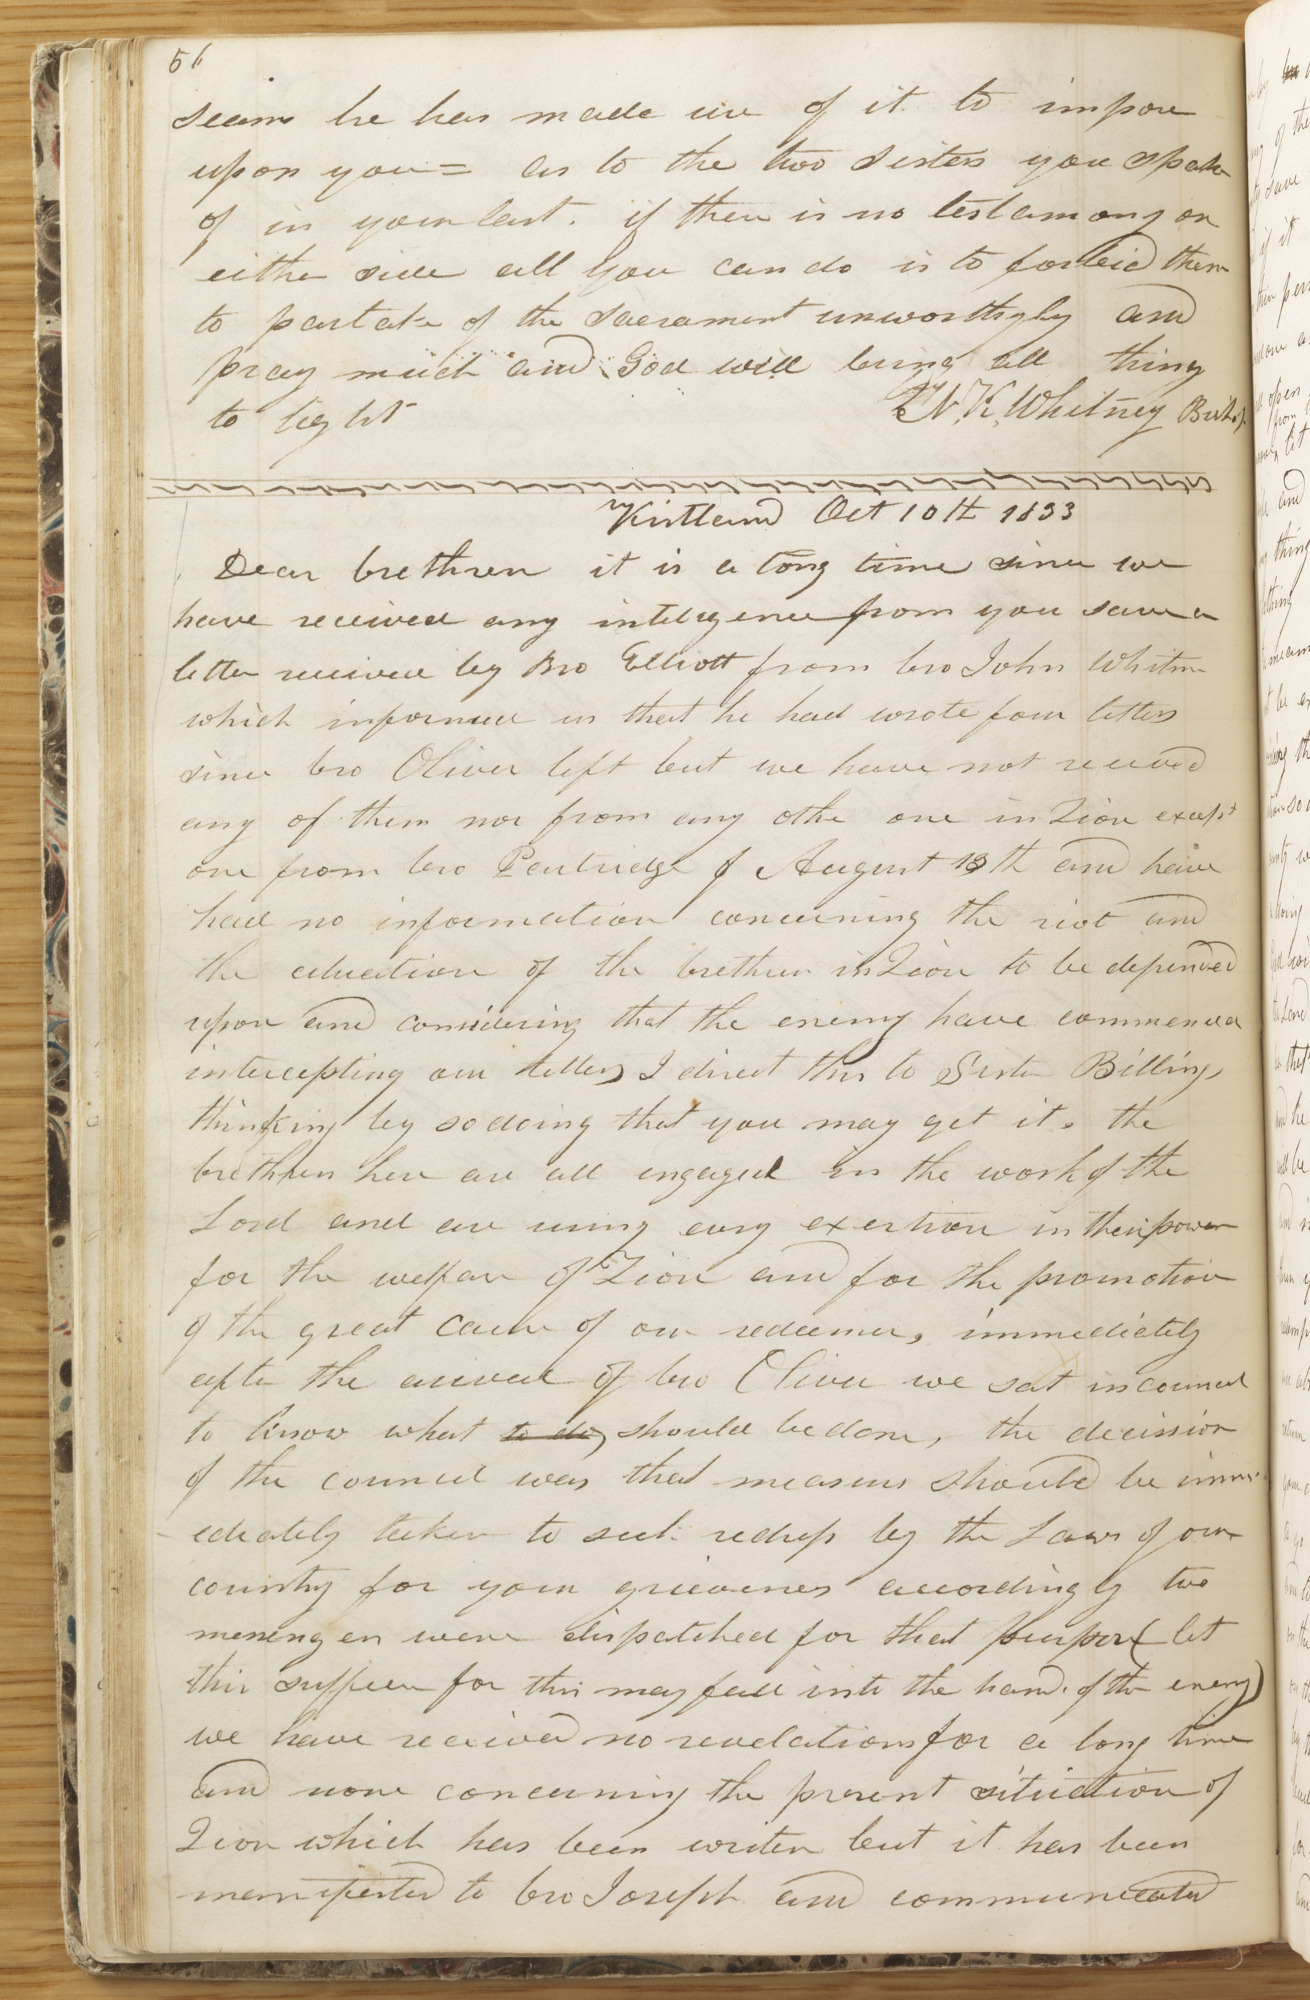 56
seams he has made use of it to impose
upon you= as to the two sisters you spake
of in your last. if there is no testamony on
either side all you can do is to forbid them
to partake of the sacrament unworthyly and
pray much and God will bring all thing
to light N. K. Whitney Bishop
Kirtland Oct 10th 1833
Dear brethren it is a long time since we
have received any inteligence from you save a
letter received by Bro Elliott from bro John Whitmer
which informed us that he had wrote four letters
since bro Oliver left but we have not received
any of them nor from any other one in Zion except
one from bro Partridge of August 13th and have
had no information concerning the riot and
the situation of the brethren in Zion to be depended
upon and considering that the enemy have commenced
intercepting our letters I direct this to Sister Billings
thinking by so doing that you may get it. the
brethren here are all engaged in the work of the
Lord and are using evry exertion in their power
for the welfare of Zion and for the promotion
of the great cause of our redeemer, immediately
after the arival of bro Oliver we sat in council
to know what to do, should be done, the decission
of the council was that measures should be imm-
ediately taken to seek redress by the Laws of our
country for your grievences accordingly two
messengers were dispatched for that purpose (let
this suffice for this may fall into the hands of the enemy)
we have received no revelations for a long time
and none concerning the present situation of
Zion which has been writen but it has been
manifested to bro Joseph and communicated